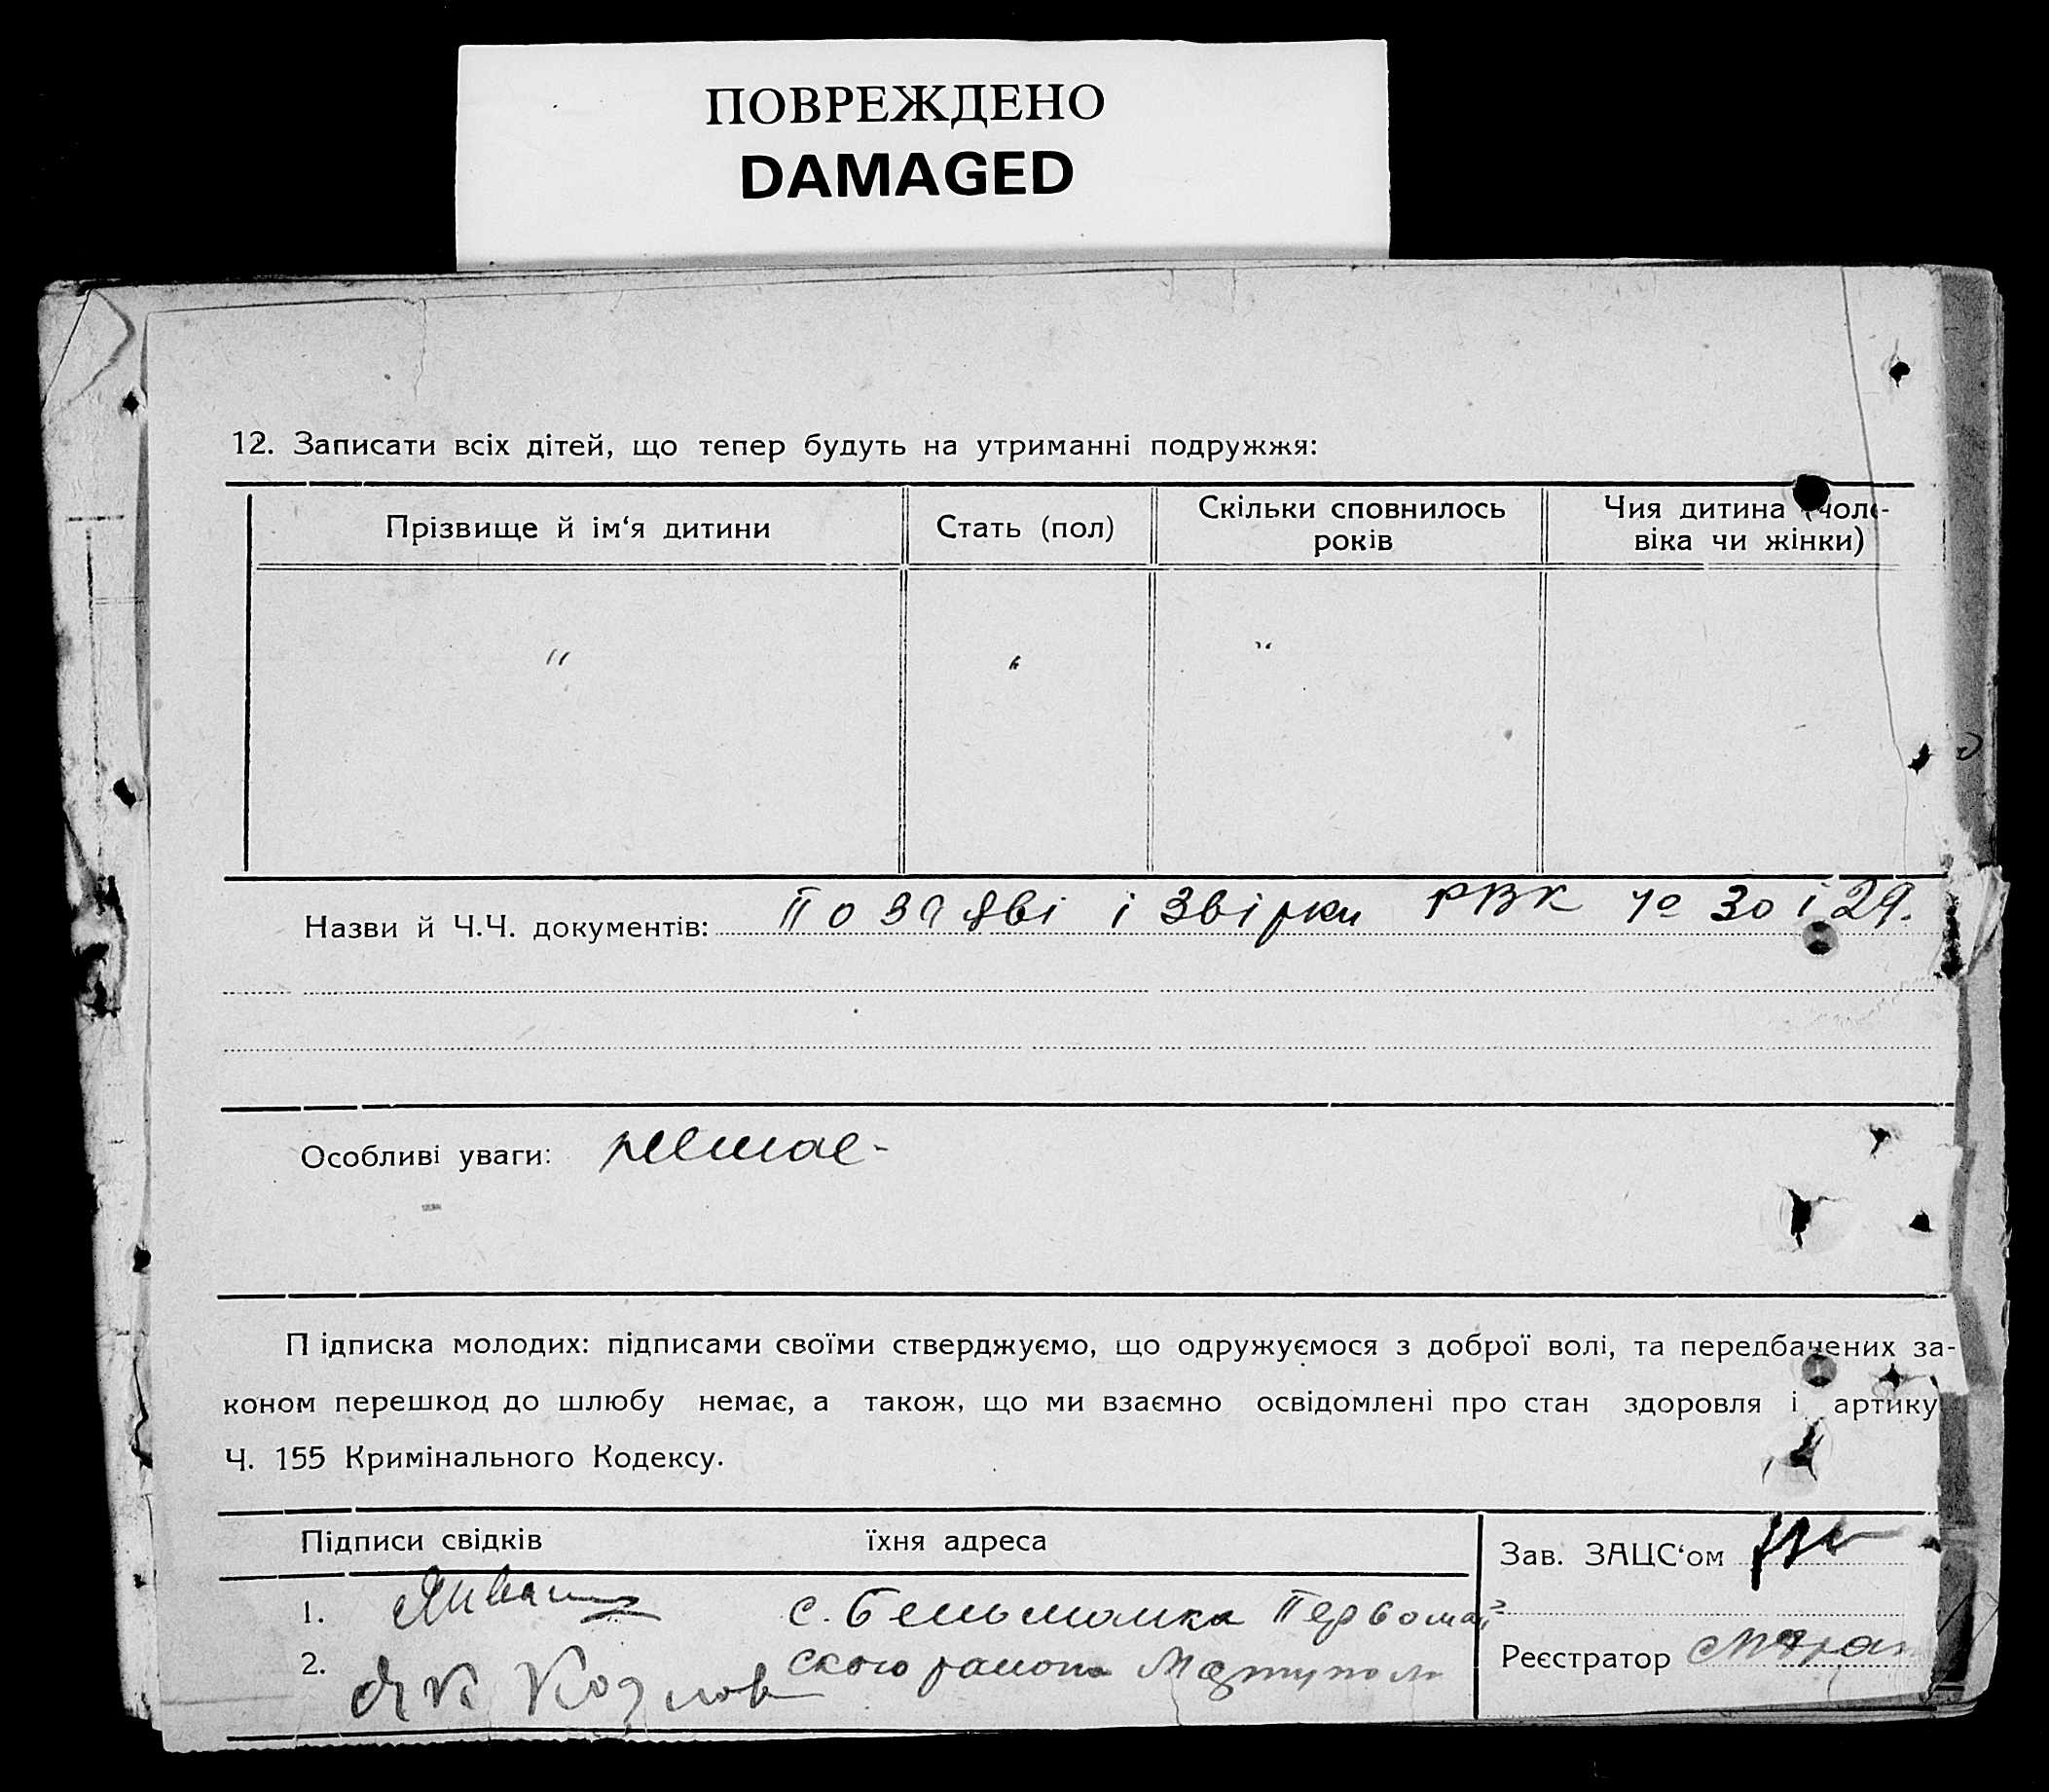 ПОВРЕЖДЕНО
DAMAGED
12. Записати всіх дітей, що тепер будуть на утриманні подружжя:
Прізвище й ім‘я дитини
Стать (пол)
Скільки сповнилось
років
Чия дитина (чоло-
віка чи жінки)
" " "
Назви й Ч.Ч. документів: По заяві і звірки РВК № 30 і 29.
Особливі уваги:
Підписка молодих: підписами своїми стверджуємо, що одружуємося з доброї волі, та передбачених за-
коном перешкод до шлюбу немає, а також, що ми взаємно освідомлені про стан здоровля і артику
Ч. 155 Кримінального Кодексу.
Підписи свідків їхня адреса
Зав. ЗАЦС‘ом
1. с. Бельманка Первомай
2. Козлов ского района Мариупол
Реєстратор